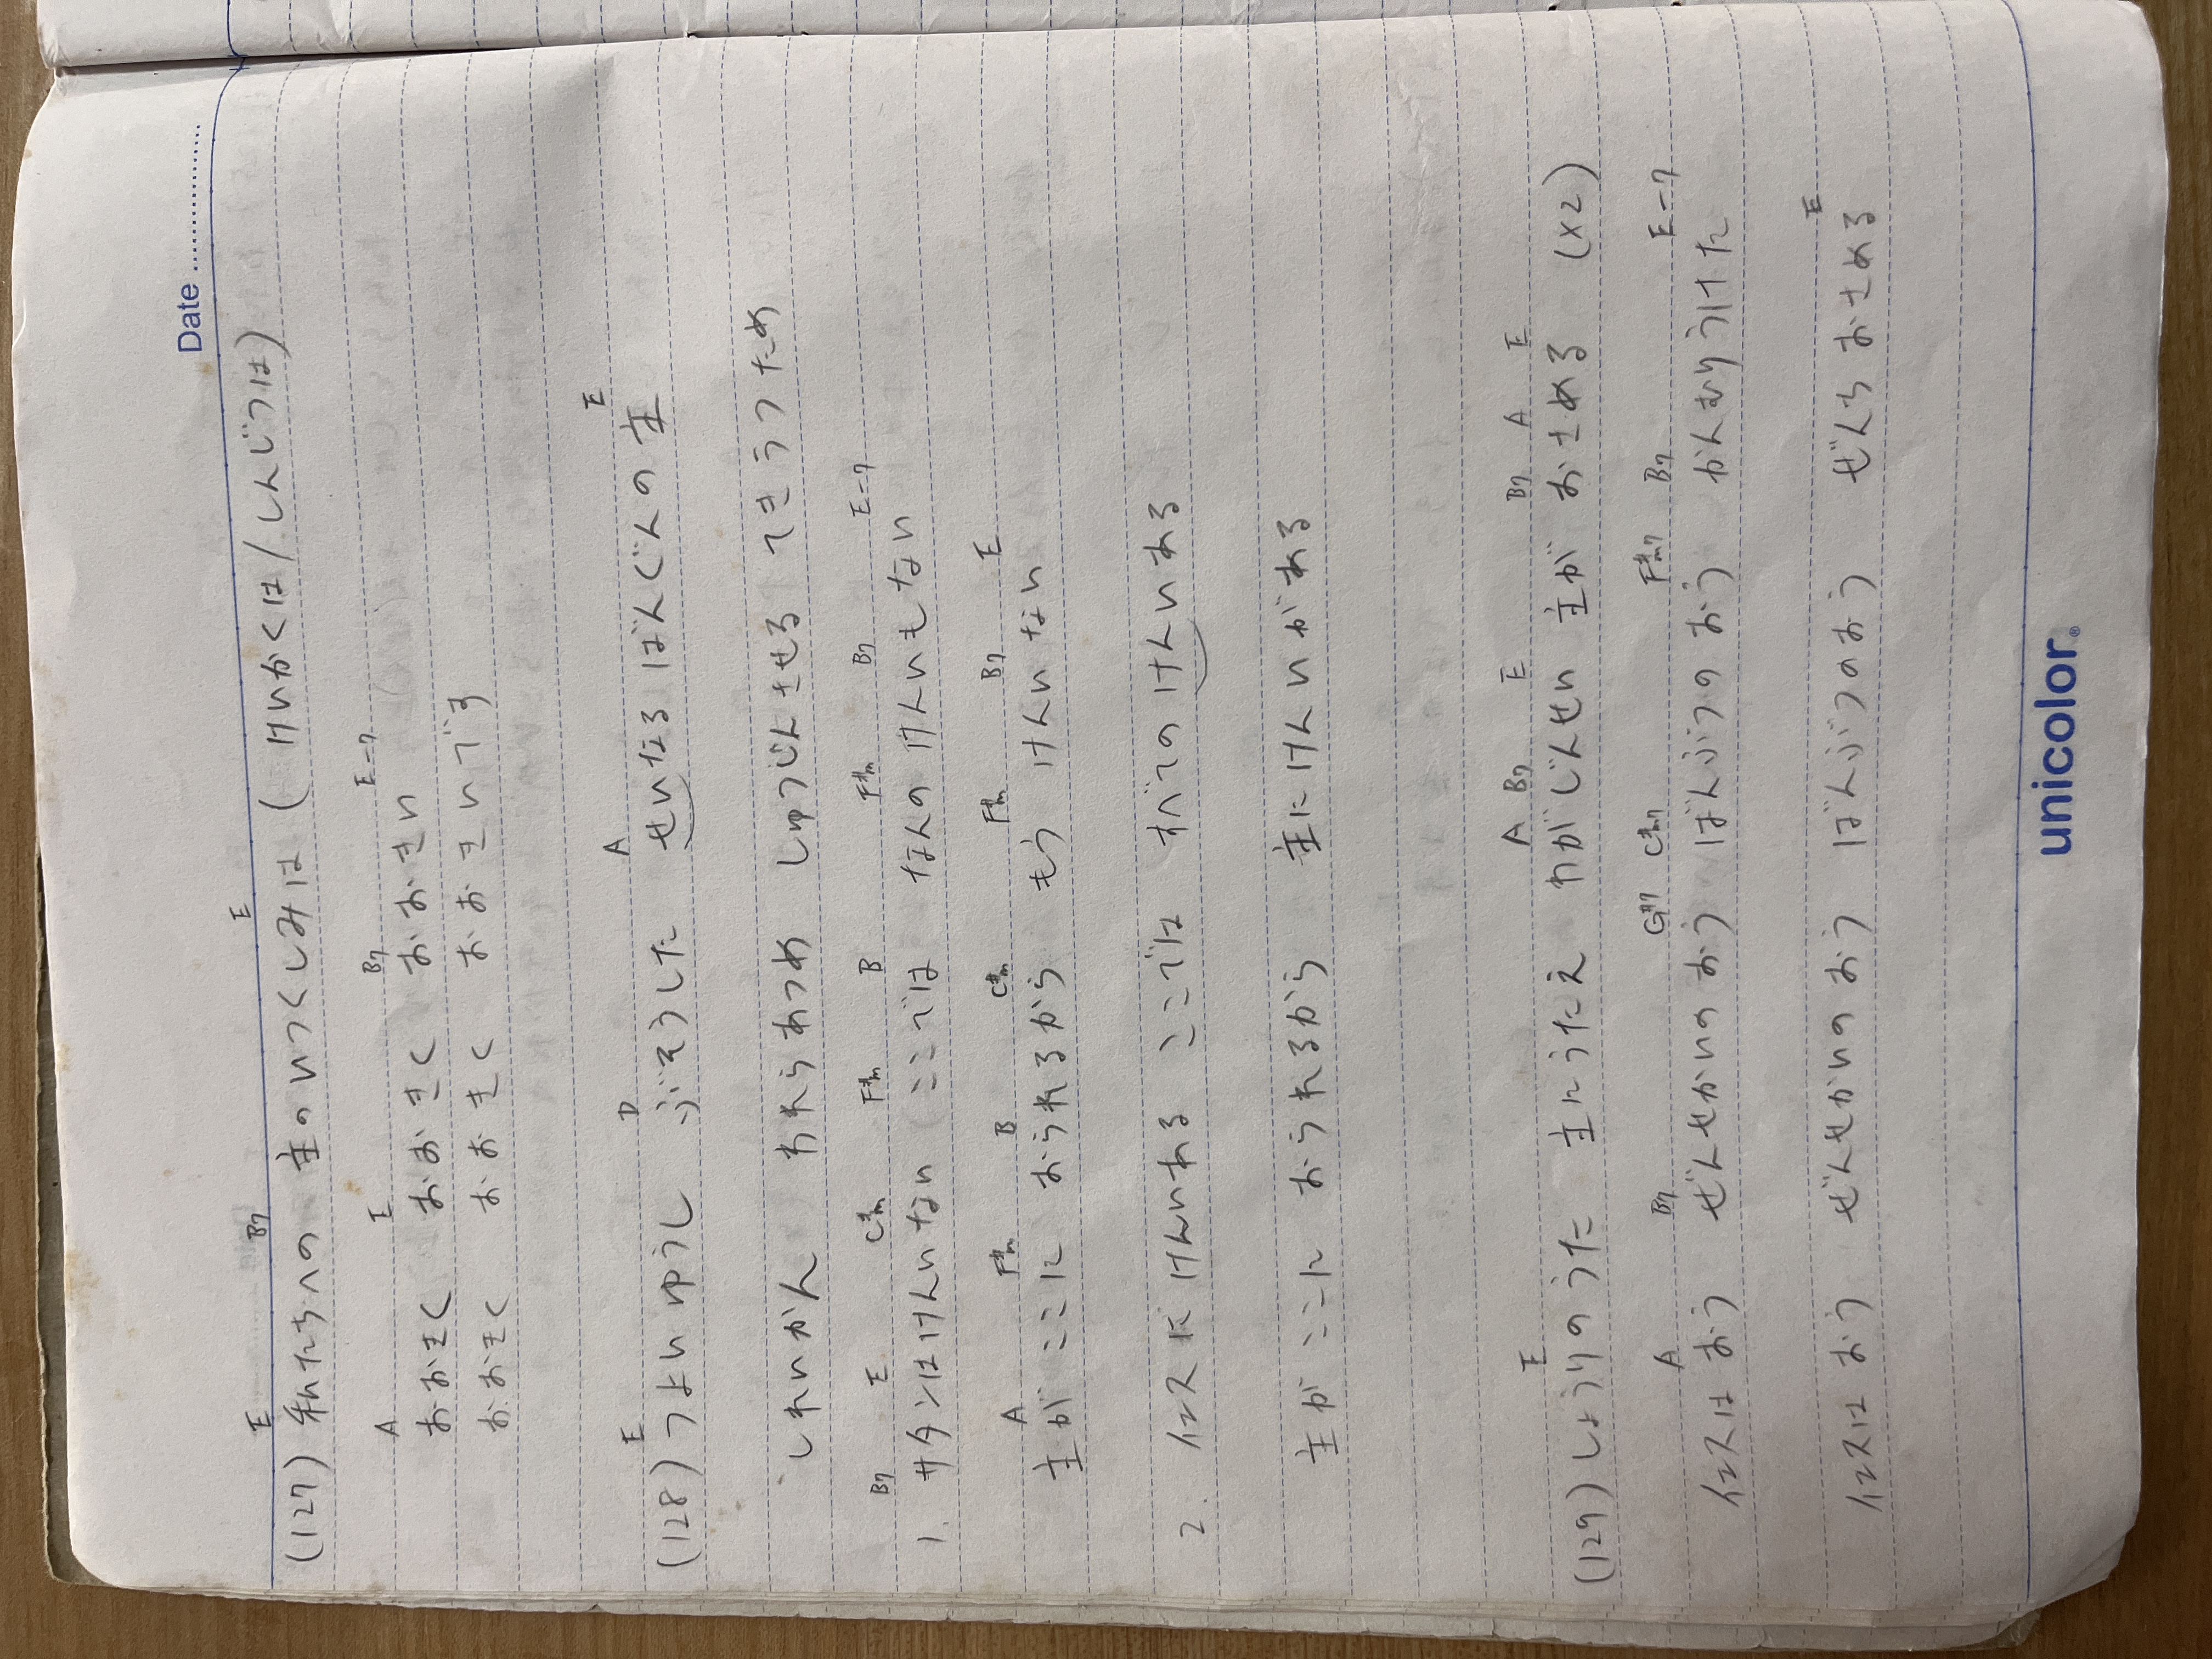 Date
E B7 E
(127) 私たちへの 主のいつくしみは (けいかくは/しんじつは)
A E B7 E-7
おおきく おおきく おおきい
おおきく おおきく おおきいです
E D A E
(128) つよいゆうし ぶそうした せいなるばんぐんの主
しれいかん われらあつめ しゅつじんさせる てきうつため
B7 E C#m F#m B F#m B7 E-7
1. サタンはけんいない ここでは なんのけんいもない
A F#m B C#m F#m B7 E
主が ここに おられるから もう けんいない
2. イエスに けんいある ここでは すべてのけんいある
主が ここに おられるから 主にけんいがある
E A B7 E B7 A E
(129) しょうりのうた 主にうたえ わがじんせい 主が おさめる (×2)
A B7 G#7 C#m7 F#m7 B7 E-7
イエスは おう ぜんせかいのおう ばんぶつのおう かんむりうけた
E
イエスは おう ぜんせかいのおう ばんぶつのおう ぜんちおさめる
unicolor®